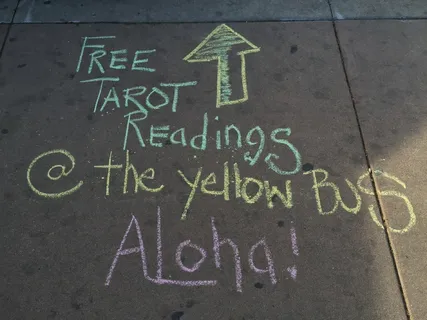 FREE
TAROT
Readings
@ the yellow BUS
Aloha!